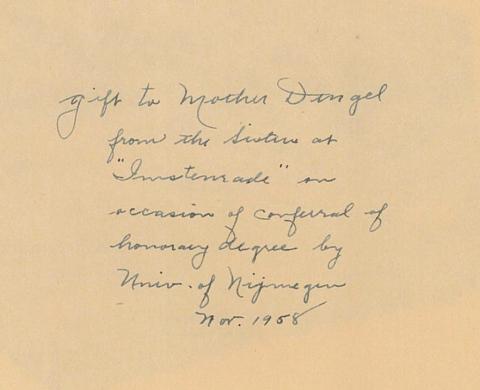 gift to Mother Dengel
from the Sisters at
"Imstenrade" on
occasion of conferral of
honorary degree by
Univ. of Nijmegen
Nov. 1958